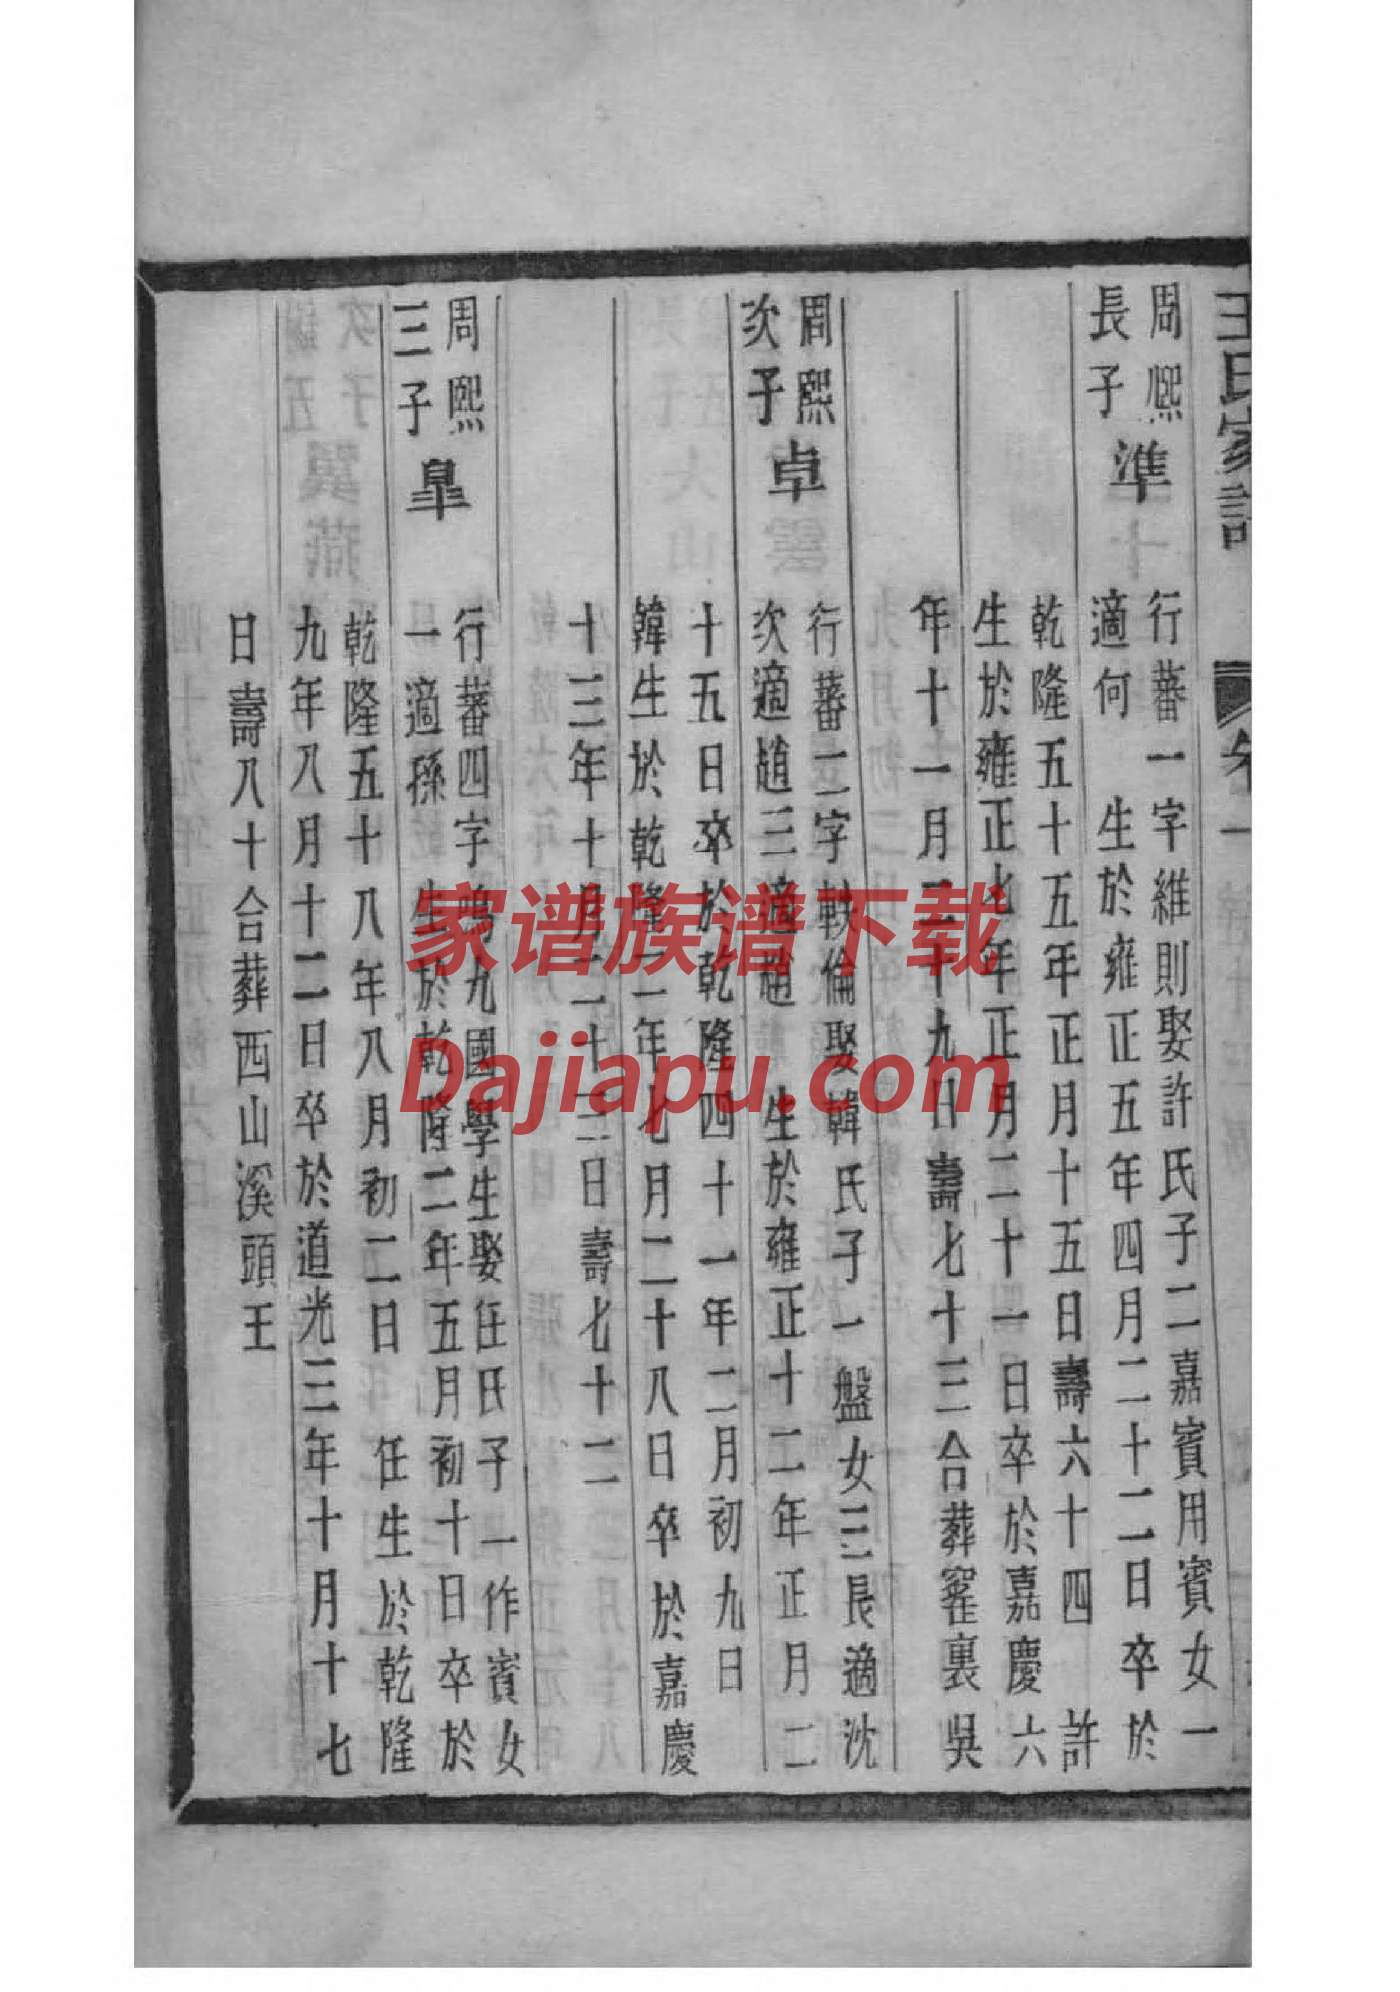 王氏家譜
卷一
周熙
長子
準
行蕃一字維則娶許氏子二嘉賓用賓女一
適何 生於雍正五年四月二十二日卒於
乾隆五十五年正月十五日壽六十四 許
生於雍正七年正月二十一日卒於嘉慶六
年十一月二十九日壽七十三合葬窰裏吳
周熙
次子
卓
行蕃二字軼倫娶韓氏子一盤女三長適沈
次適趙三適趙 生於雍正十二年正月二
十五日卒於乾隆四十一年二月初九日
韓生於乾隆二年七月二十八日卒於嘉慶
十三年十月二十三日壽七十二
周熙
三子
皐
行蕃四字鳴九國學生娶任氏子一作賓女
一適孫 生於乾隆二年五月初十日卒於
乾隆五十八年八月初二日 任生於乾隆
九年八月十二日卒於道光三年十月十七
日壽八十合葬西山溪頭王
家谱族谱下载
Dajiapu.com